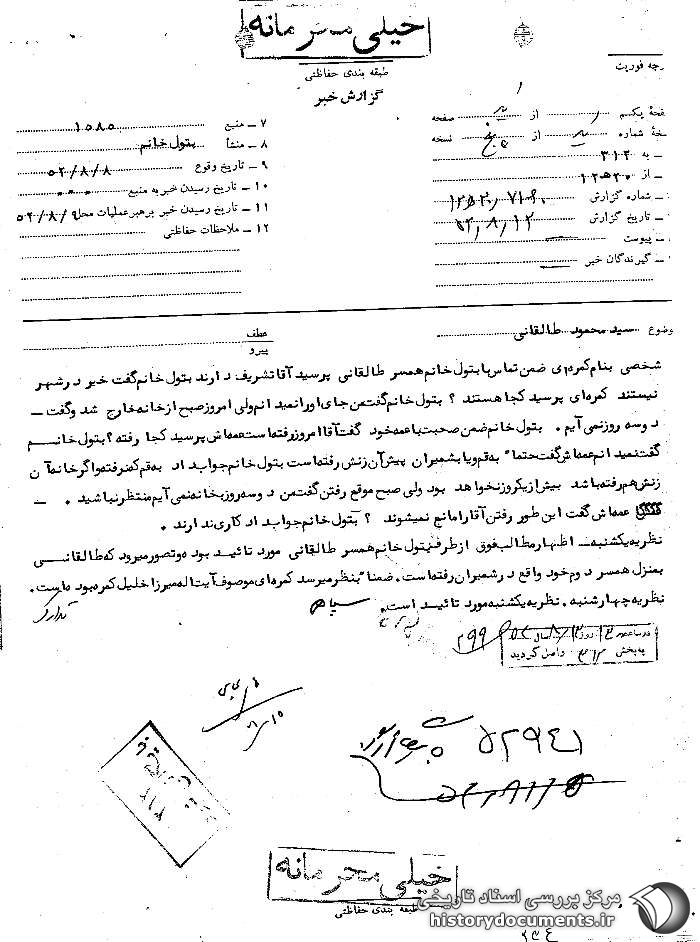 خیلی محرمانه
طبقه بندی حفاظتی
گزارش خبر
رجه فوریت
فحهٔ یکم از صفحه
خهٔ شماره از پنج نسخه
ـ به ۳۱۲
ـ از ۲۰ ه ۱۲
ـ شماره گزارش
ـ تاریخ گزارش ۵۲/۸/۱۲
ـ پیوست
ـ گیرندگان خبر
۷ ـ منبع ۱۵۸۵
۸ ـ منشأ بتول خانم
۹ ـ تاریخ وقوع ۵۲/۸/۸
۱۰ ـ تاریخ رسیدن خبر به منبع
۱۱ ـ تاریخ رسیدن خبر برهبر عملیات محل ۵۲/۸/۹
۱۲ ـ ملاحظات حفاظتی
وضوع سید محمود طالقانی
عطف
پیرو
شخصی بنام کمره‌ای ضمن تماس با بتول خانم همسر طالقانی پرسید آقا تشریف دارند بتول خانم گفت خیر در شهر
نیستند کمره‌ای پرسید کجا هستند ؟ بتول خانم گفت من جای او را نمیدانم ولی امروز صبح از خانه خارج شد و گفت ـ
دو سه روز نمی آیم . بتول خانم ضمن صحبت با عمه خود گفت آقا امروز رفته است عمه‌اش پرسید کجا رفته ؟ بتول خانم
گفت نمیدانم عمه‌اش گفت حتماً به قم و یا بشمیران پیش آن زنش رفته است بتول خانم جواب داد به قم که نرفته و اگر خانه آن
زنش هم رفته باشد بیش از یکروز نخواهد بود ولی صبح موقع رفتن گفت من دو سه روز بخانه نمی آیم منتظر نباشید . ـ
عمه‌اش گفت این طور رفتن آقا را مانع نمیشوند ؟ بتول خانم جواب داد کاری ندارند .
نظریه یکشنبه ـ اظهار مطالب فوق از طرف بتول خانم همسر طالقانی مورد تائید بوده و تصور میرود که طالقانی
بمنزل همسر دوم خود واقع در شمیران رفته است. ضمناً بنظر میرسد کمره‌ای موصوف آیت اله میرزا خلیل کمره بوده است.
نظریه چهارشنبه . نظریه یکشنبه مورد تائید است.
در ساعت روز سال ۵۲
به بخش ۳۱۲ واصل گردید
۲۹۹
۵۲۹۴۱
۳۱۲
خیلی محرمانه
طبقه بندی حفاظتی
۲۳۴
مرکز بررسی اسناد تاریخی
historydocuments.ir